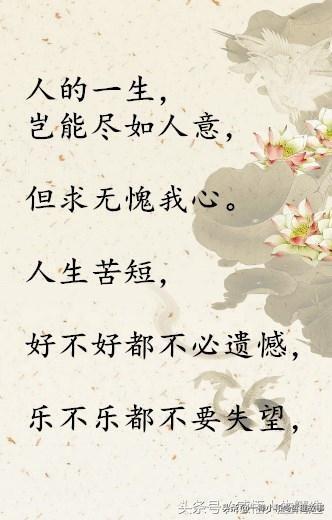 人的一生，
岂能尽如人意，
但求无愧我心。
人生苦短，
好不好都不必遗憾，
乐不乐都不要失望，
头条号